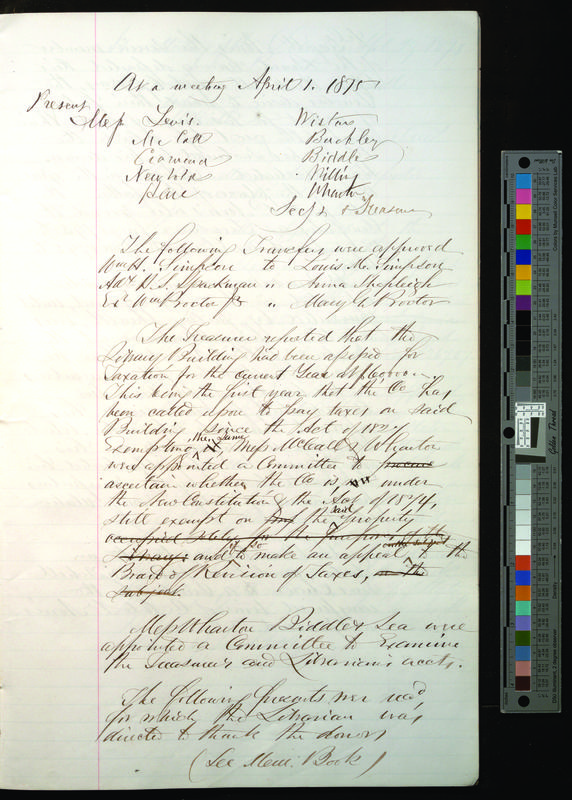 At a meeting April 1. 1875
Present
Mess Lewis. Wistar
McCall Buckley
Cramond Biddle
Newbold Willing
Lea Wharton
Secy & Treasurer
The following Transfers were approved
Wm H. Simpson to Louis M. Simpson
Adx D. S. Sparkman " Anna Shapleigh
Ex Wm Proctor Jr " Mary A Proctor
The Treasurer reported that the
Library Building had been assessed for
Taxation for the current Year at
This being the first year that the Co has
been called upon to pay taxes on said
Building since the Act of
Exempting the same Mess McCall & Wharton
were appointed a Committee to
ascertain whether the Co is, under
the New Constitution & the Act of 1874,
still exempt on the said property
occupied solely for the purposes of the
Library: and if so to make an appeal, to the
Board of Revision of Taxes, on the
subject.
Mess Wharton Biddle & Lea were
appointed a Committee to Examine
the Treasurer and Librarian's accts.
The following presents were recd
for which the Librarian was
directed to thank the donors
(See Mem. Book)